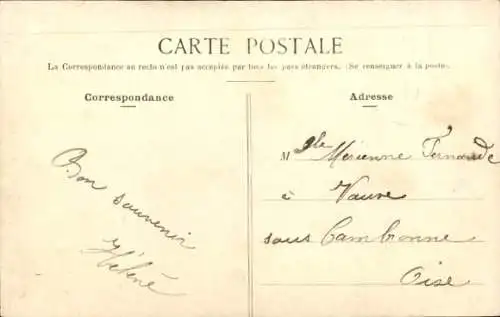 CARTE POSTALE
La Correspondance au recto n'est pas acceptée par tous les pays étrangers. (Se renseigner à la poste).
Correspondance
Bon
souvenir
Hélène
Adresse
Mlle Merienne Fernande
à Vauvé
sous Cambronne
Oise